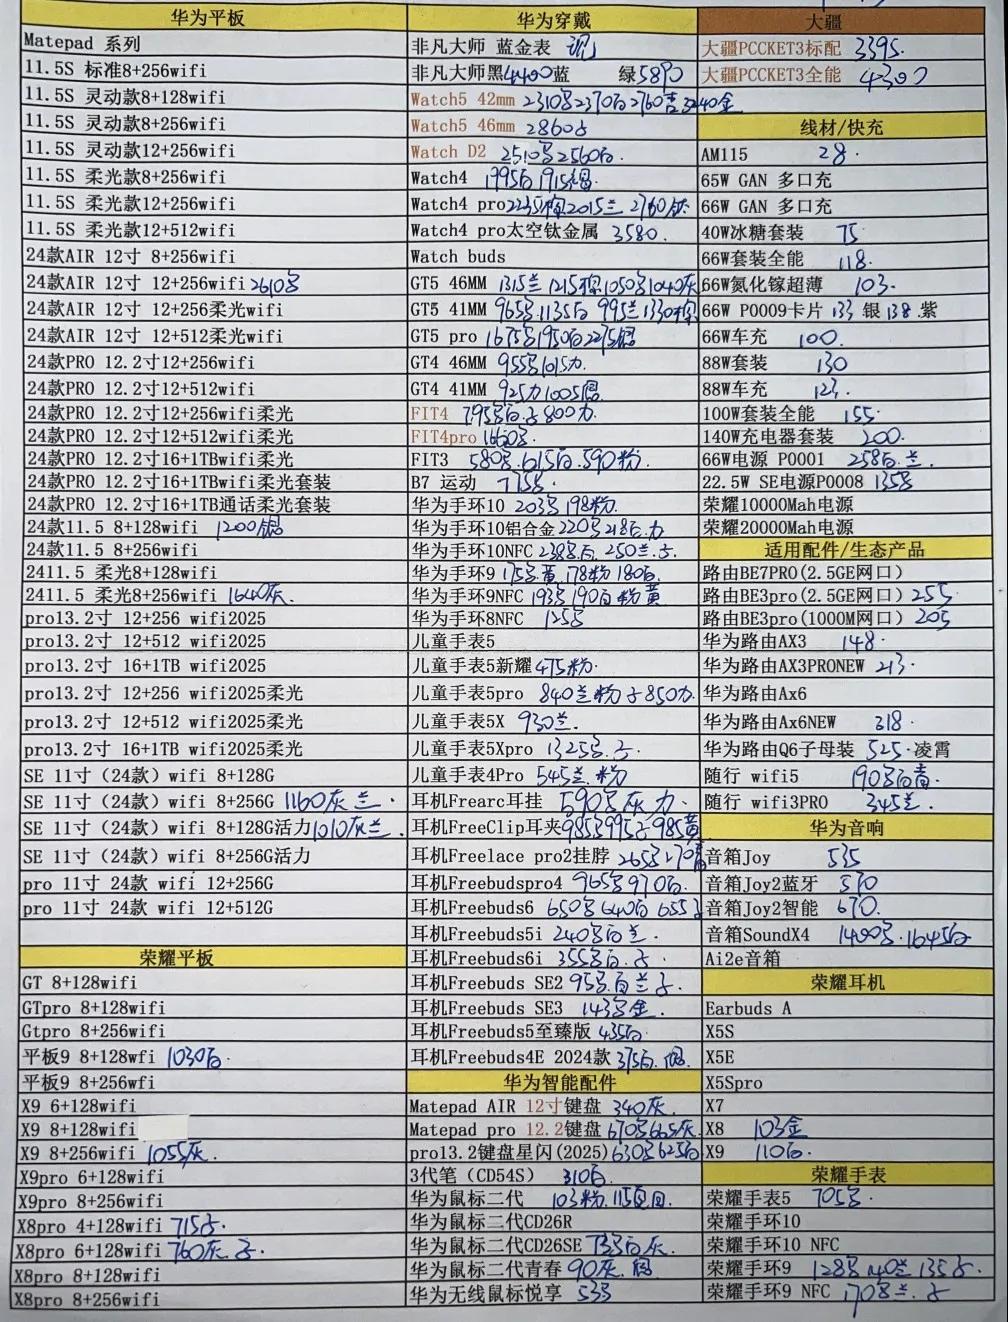 华为平板
Matepad 系列
11.5S 标准8+256wifi
11.5S 灵动款8+128wifi
11.5S 灵动款8+256wifi
11.5S 灵动款12+256wifi
11.5S 柔光款8+256wifi
11.5S 柔光款12+256wifi
11.5S 柔光款12+512wifi
24款AIR 12寸 8+256wifi
24款AIR 12寸 12+256wifi 2610
24款AIR 12寸 12+256柔光wifi
24款AIR 12寸 12+512柔光wifi
24款PRO 12.2寸12+256wifi
24款PRO 12.2寸12+512wifi
24款PRO 12.2寸12+256wifi柔光
24款PRO 12.2寸12+512wifi柔光
24款PRO 12.2寸16+1TBwifi柔光
24款PRO 12.2寸16+1TBwifi柔光套装
24款PRO 12.2寸16+1TB通话柔光套装
24款11.5 8+128wifi 1200银
24款11.5 8+256wifi
2411.5 柔光8+128wifi
2411.5 柔光8+256wifi 1640灰.
pro13.2寸 12+256 wifi2025
pro13.2寸 12+512 wifi2025
pro13.2寸 16+1TB wifi2025
pro13.2寸 12+256 wifi2025柔光
pro13.2寸 12+512 wifi2025柔光
pro13.2寸 16+1TB wifi2025柔光
SE 11寸（24款）wifi 8+128G
SE 11寸（24款）wifi 8+256G 1160灰 兰.
SE 11寸（24款）wifi 8+128G活力 1010灰兰.
SE 11寸（24款）wifi 8+256G活力
pro 11寸 24款 wifi 12+256G
pro 11寸 24款 wifi 12+512G
荣耀平板
GT 8+128wifi
GTpro 8+128wifi
Gtpro 8+256wifi
平板9 8+128wfi 1030白.
平板9 8+256wfi
X9 6+128wifi
X9 8+128wifi
X9 8+256wifi 1055灰.
X9pro 6+128wifi
X9pro 8+256wifi
X8pro 4+128wifi 715
X8pro 6+128wifi 760灰
X8pro 8+128wifi
X8pro 8+256wifi
华为穿戴
非凡大师 蓝金表 现
非凡大师黑4400蓝 绿5890
Watch5 42mm 2310 2370白2760 3240金
Watch5 46mm 2860
Watch D2 2510 2560白.
Watch4 1995白 1915
Watch4 pro 2235 2015兰 2760
Watch4 pro太空钛金属 3580.
Watch buds
GT5 46MM 1315兰 1215 1050 1040灰
GT5 41MM 965 1135白 995兰1330
GT5 pro 1675 1950白2275
GT4 46MM 955 1015
GT4 41MM 925 1005
FIT4 795 白 800
FIT4pro 1660
FIT3 580 .615白.590粉.
B7 运动 775
华为手环10 203 198粉.
华为手环10铝合金 220 218白
华为手环10NFC 238 白. 250兰.
华为手环9 175 黄 178粉 180白.
华为手环9NFC 193 190白 粉 黄
华为手环8NFC 125
儿童手表5
儿童手表5新耀 475粉.
儿童手表5pro 840兰粉 850
儿童手表5X 930兰.
儿童手表5Xpro 1325
儿童手表4Pro 545兰. 粉
耳机Frearc耳挂 590 灰
耳机FreeClip耳夹 985 995 985黄
耳机Freelace pro2挂脖 265 270
耳机Freebudspro4 965 970白.
耳机Freebuds6 650 640白 655
耳机Freebuds5i 240 白兰.
耳机Freebuds6i 355 白.
耳机Freebuds SE2 95 白兰
耳机Freebuds SE3 143 金.
耳机Freebuds5至臻版 435白
耳机Freebuds4E 2024款 375白.
华为智能配件
Matepad AIR 12寸键盘 340灰.
Matepad pro 12.2键盘 670 665灰
pro13.2键盘星闪(2025) 630 625白
3代笔（CD54S） 310白
华为鼠标二代 103粉.115
华为鼠标二代CD26R
华为鼠标二代CD26SE 733 白灰.
华为鼠标二代青春 90灰.
华为无线鼠标悦享 53
大疆
大疆PCCKET3标配 3395.
大疆PCCKET3全能 4300
线材/快充
AM115 28.
65W GAN 多口充
66W GAN 多口充
40W冰糖套装 75
66W套装全能 118.
66W氮化镓超薄 103.
66W P0009卡片 133 银 138.紫
66W车充 100.
88W套装 130
88W车充 123.
100W套装全能 155.
140W充电器套装 200.
66W电源 P0001 258白.兰.
22.5W SE电源P0008 135
荣耀10000Mah电源
荣耀20000Mah电源
适用配件/生态产品
路由BE7PRO(2.5GE网口)
路由BE3pro(2.5GE网口) 255.
路由BE3pro(1000M网口) 205
华为路由AX3 148.
华为路由AX3PRONEW 213.
华为路由Ax6
华为路由Ax6NEW 318.
华为路由Q6子母装 525.凌霄
随行 wifi5 190 白青.
随行 wifi3PRO 345兰.
华为音响
音箱Joy 535
音箱Joy2蓝牙 570
音箱Joy2智能 670.
音箱SoundX4 1400 .1645白
Ai2e音箱
荣耀耳机
Earbuds A
X5S
X5E
X5Spro
X7
X8 103金
X9 110白.
荣耀手表
荣耀手表5 705
荣耀手环10
荣耀手环10 NFC
荣耀手环9 128 140兰 135
荣耀手环9 NFC 170 兰.